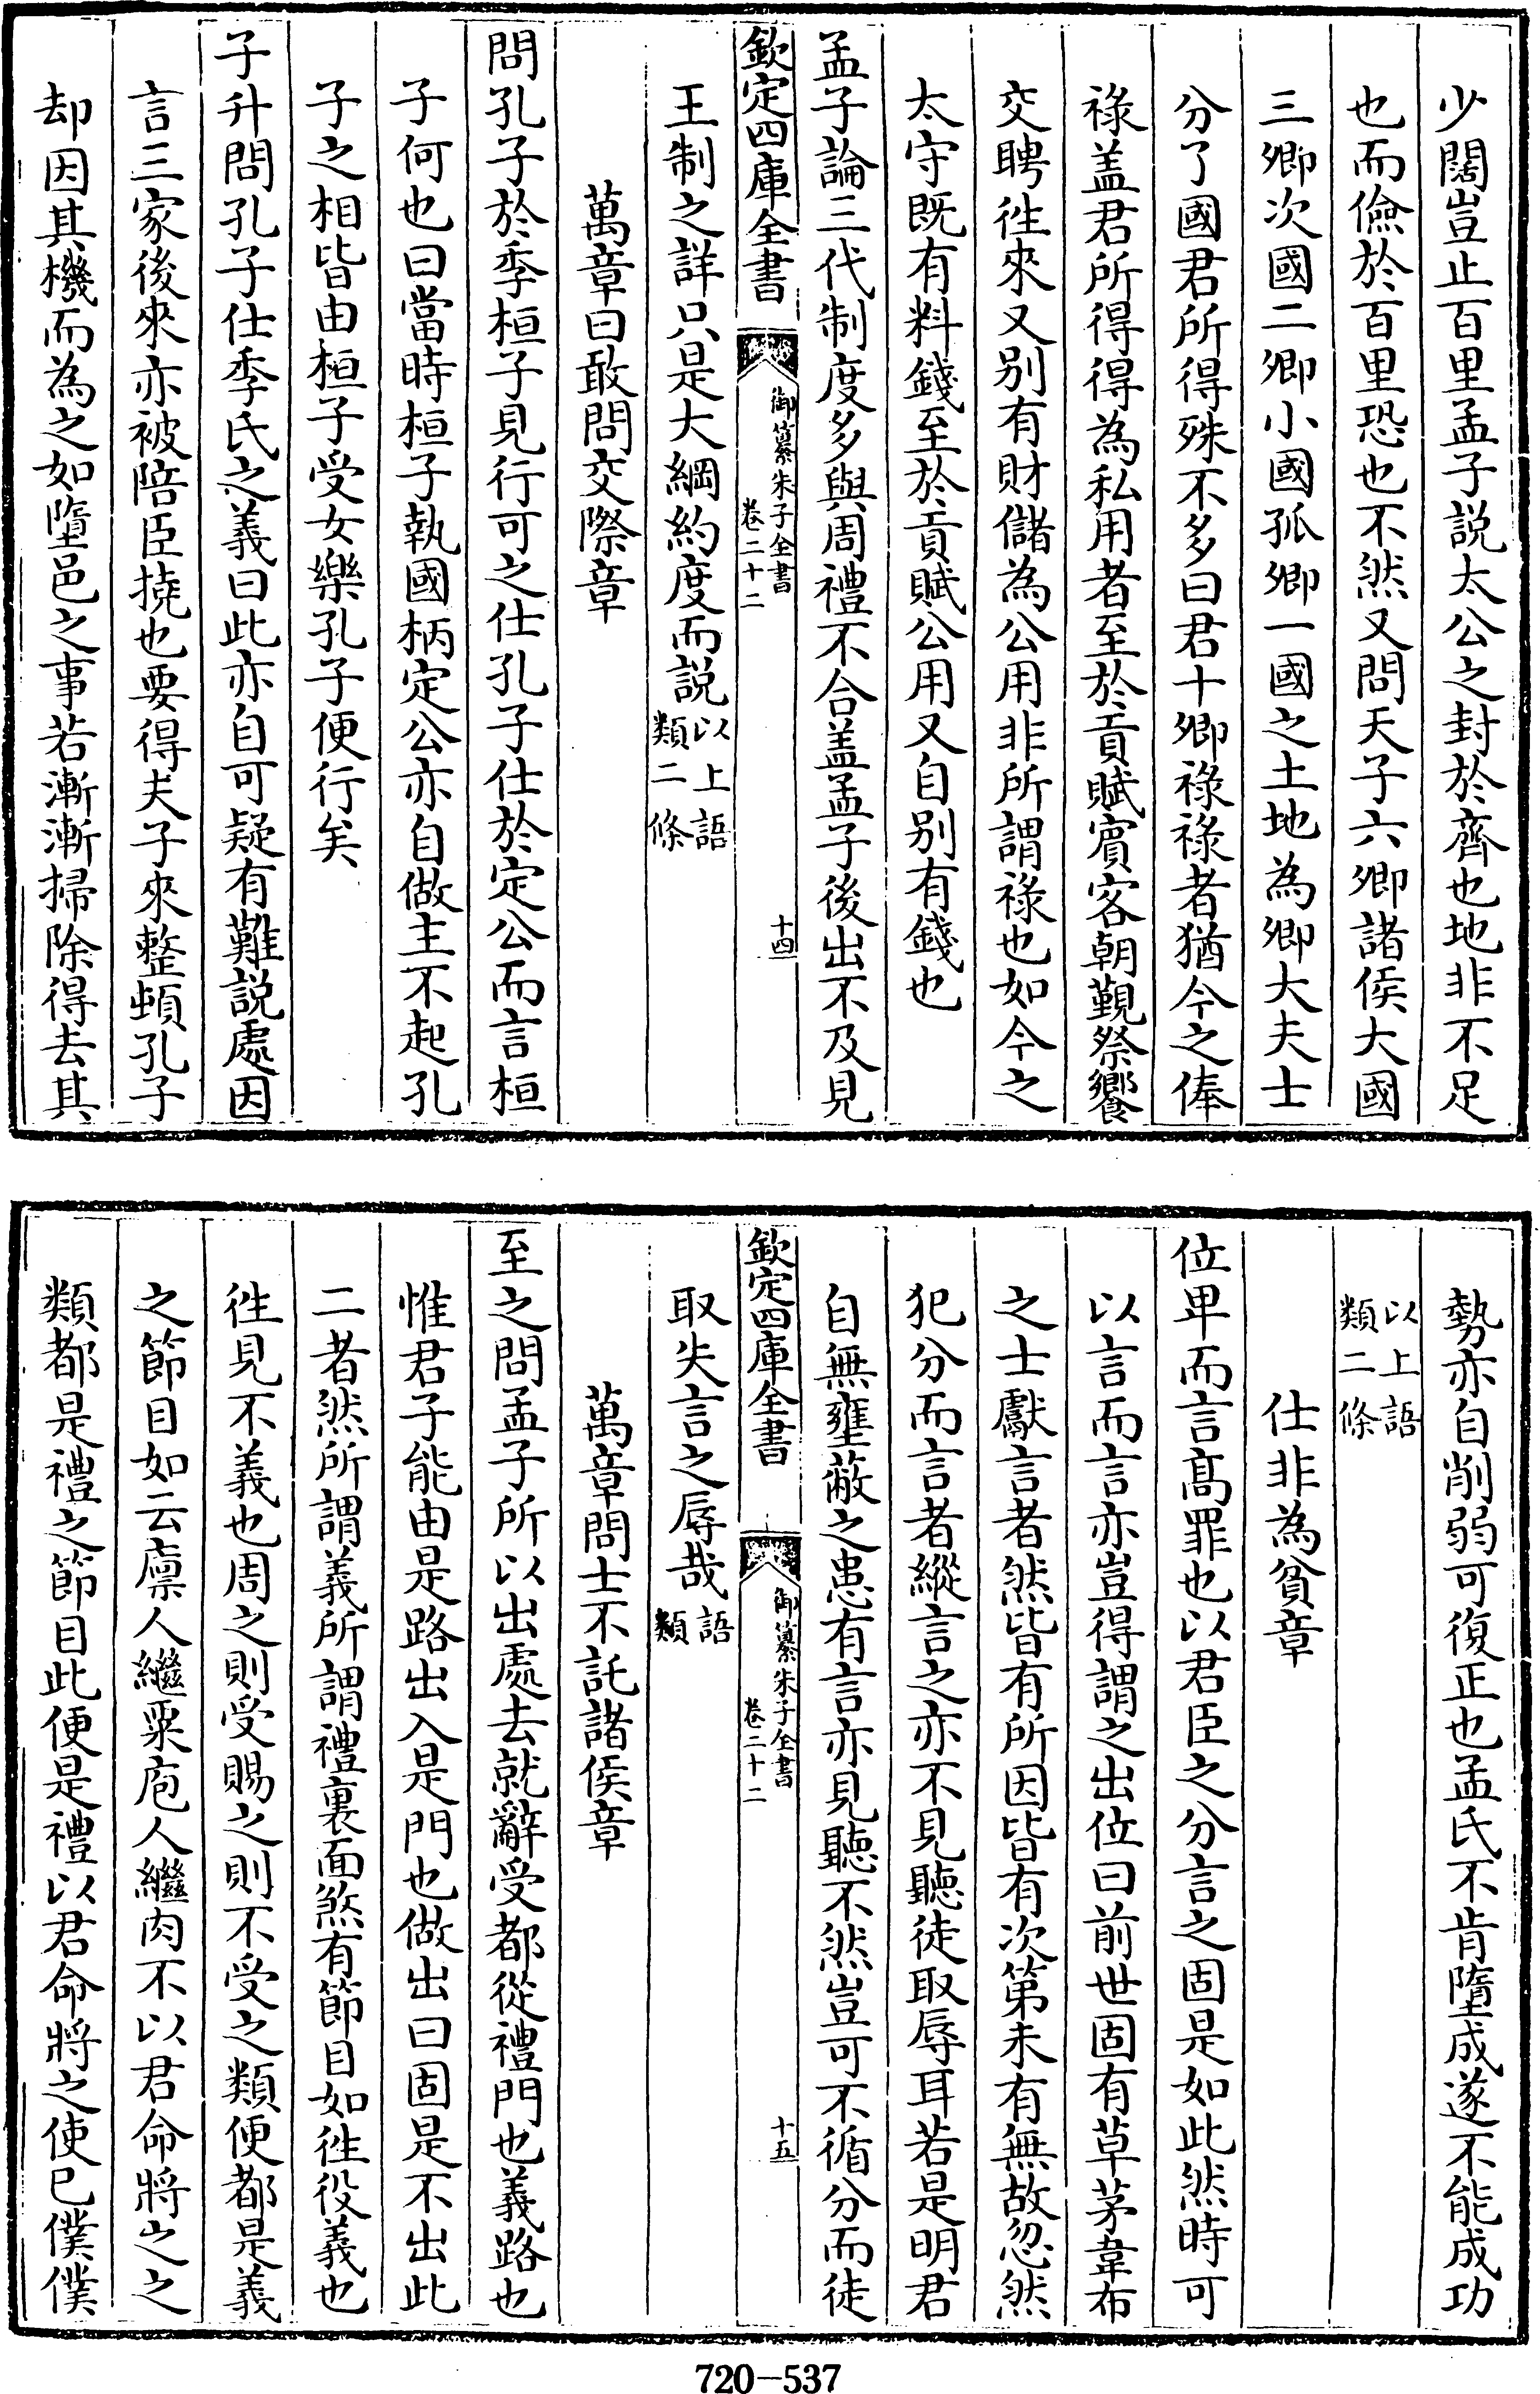 少闊豈止百里孟子說太公之封於齊也地非不足
也而儉於百里恐也不然又問天子六卿諸侯大國
三卿次國二卿小國孤卿一國之土地為卿大夫士
分了國君所得殊不多曰君十卿祿祿者猶今之俸
祿盖君所得得為私用者至於貢賦賓客朝覲祭饗
交聘徃來又别有財儲為公用非所謂祿也如今之
太守既有料錢至於貢賦公用又自别有錢也
孟子論三代制度多與周禮不合盖孟子後出不及見
欽定四庫全書
御纂朱子全書
卷二十二
十四
王制之詳只是大綱約度而説以上語
類二條
萬章曰敢問交際章
問孔子於季桓子見行可之仕孔子仕於定公而言桓
子何也曰當時桓子執國柄定公亦自做主不起孔
子之相皆由桓子受女樂孔子便行矣
子升問孔子仕季氏之義曰此亦自可疑有難説處因
言三家後來亦被陪臣撓也要得夫子來整頓孔子
却因其機而為之如墮邑之事若漸漸掃除得去其
勢亦自削弱可復正也孟氏不肯墮成遂不能成功
以上語
類二條
仕非為貧章
位卑而言髙罪也以君臣之分言之固是如此然時可
以言而言亦豈得謂之出位曰前世固有草茅韋布
之士獻言者然皆有所因皆有次第未有無故忽然
犯分而言者縱言之亦不見聽徒取辱耳若是明君
自無壅蔽之患有言亦見聽不然豈可不循分而徒
欽定四庫全書
御纂朱子全書
卷二十二
十五
取失言之辱哉語
類
萬章問士不託諸侯章
至之問孟子所以出處去就辭受都從禮門也義路也
惟君子能由是路出入是門也做出曰固是不出此
二者然所謂義所謂禮裏面煞有節目如徃役義也
徃見不義也周之則受賜之則不受之類便都是義
之節目如云廪人繼粟庖人繼肉不以君命將之之
類都是禮之節目此便是禮以君命將之使已僕僕
720-537